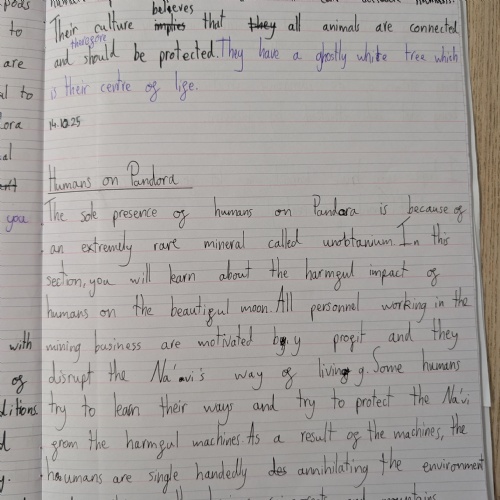 pods
to
are
al to
dora
al
you
with
of
ditions.
d
y.
believes
Their culture implies that they all animals are connected
therefore
and should be protected. They have a ghostly white tree which
is their centre of life.
14.10.25
Humans on Pandora
The sole presence of humans on Pandora is because of
an extremely rare mineral called unobtanium. In this
section, you will learn about the harmful impact of
humans on the beautiful moon. All personnel working in the
mining business are motivated by profit and they
disrupt the Na'vi's way of living. Some humans
try to learn their ways and try to protect the Na'vi
from the harmful machines. As a result of the machines, the
humans are single handedly des annihilating the environment